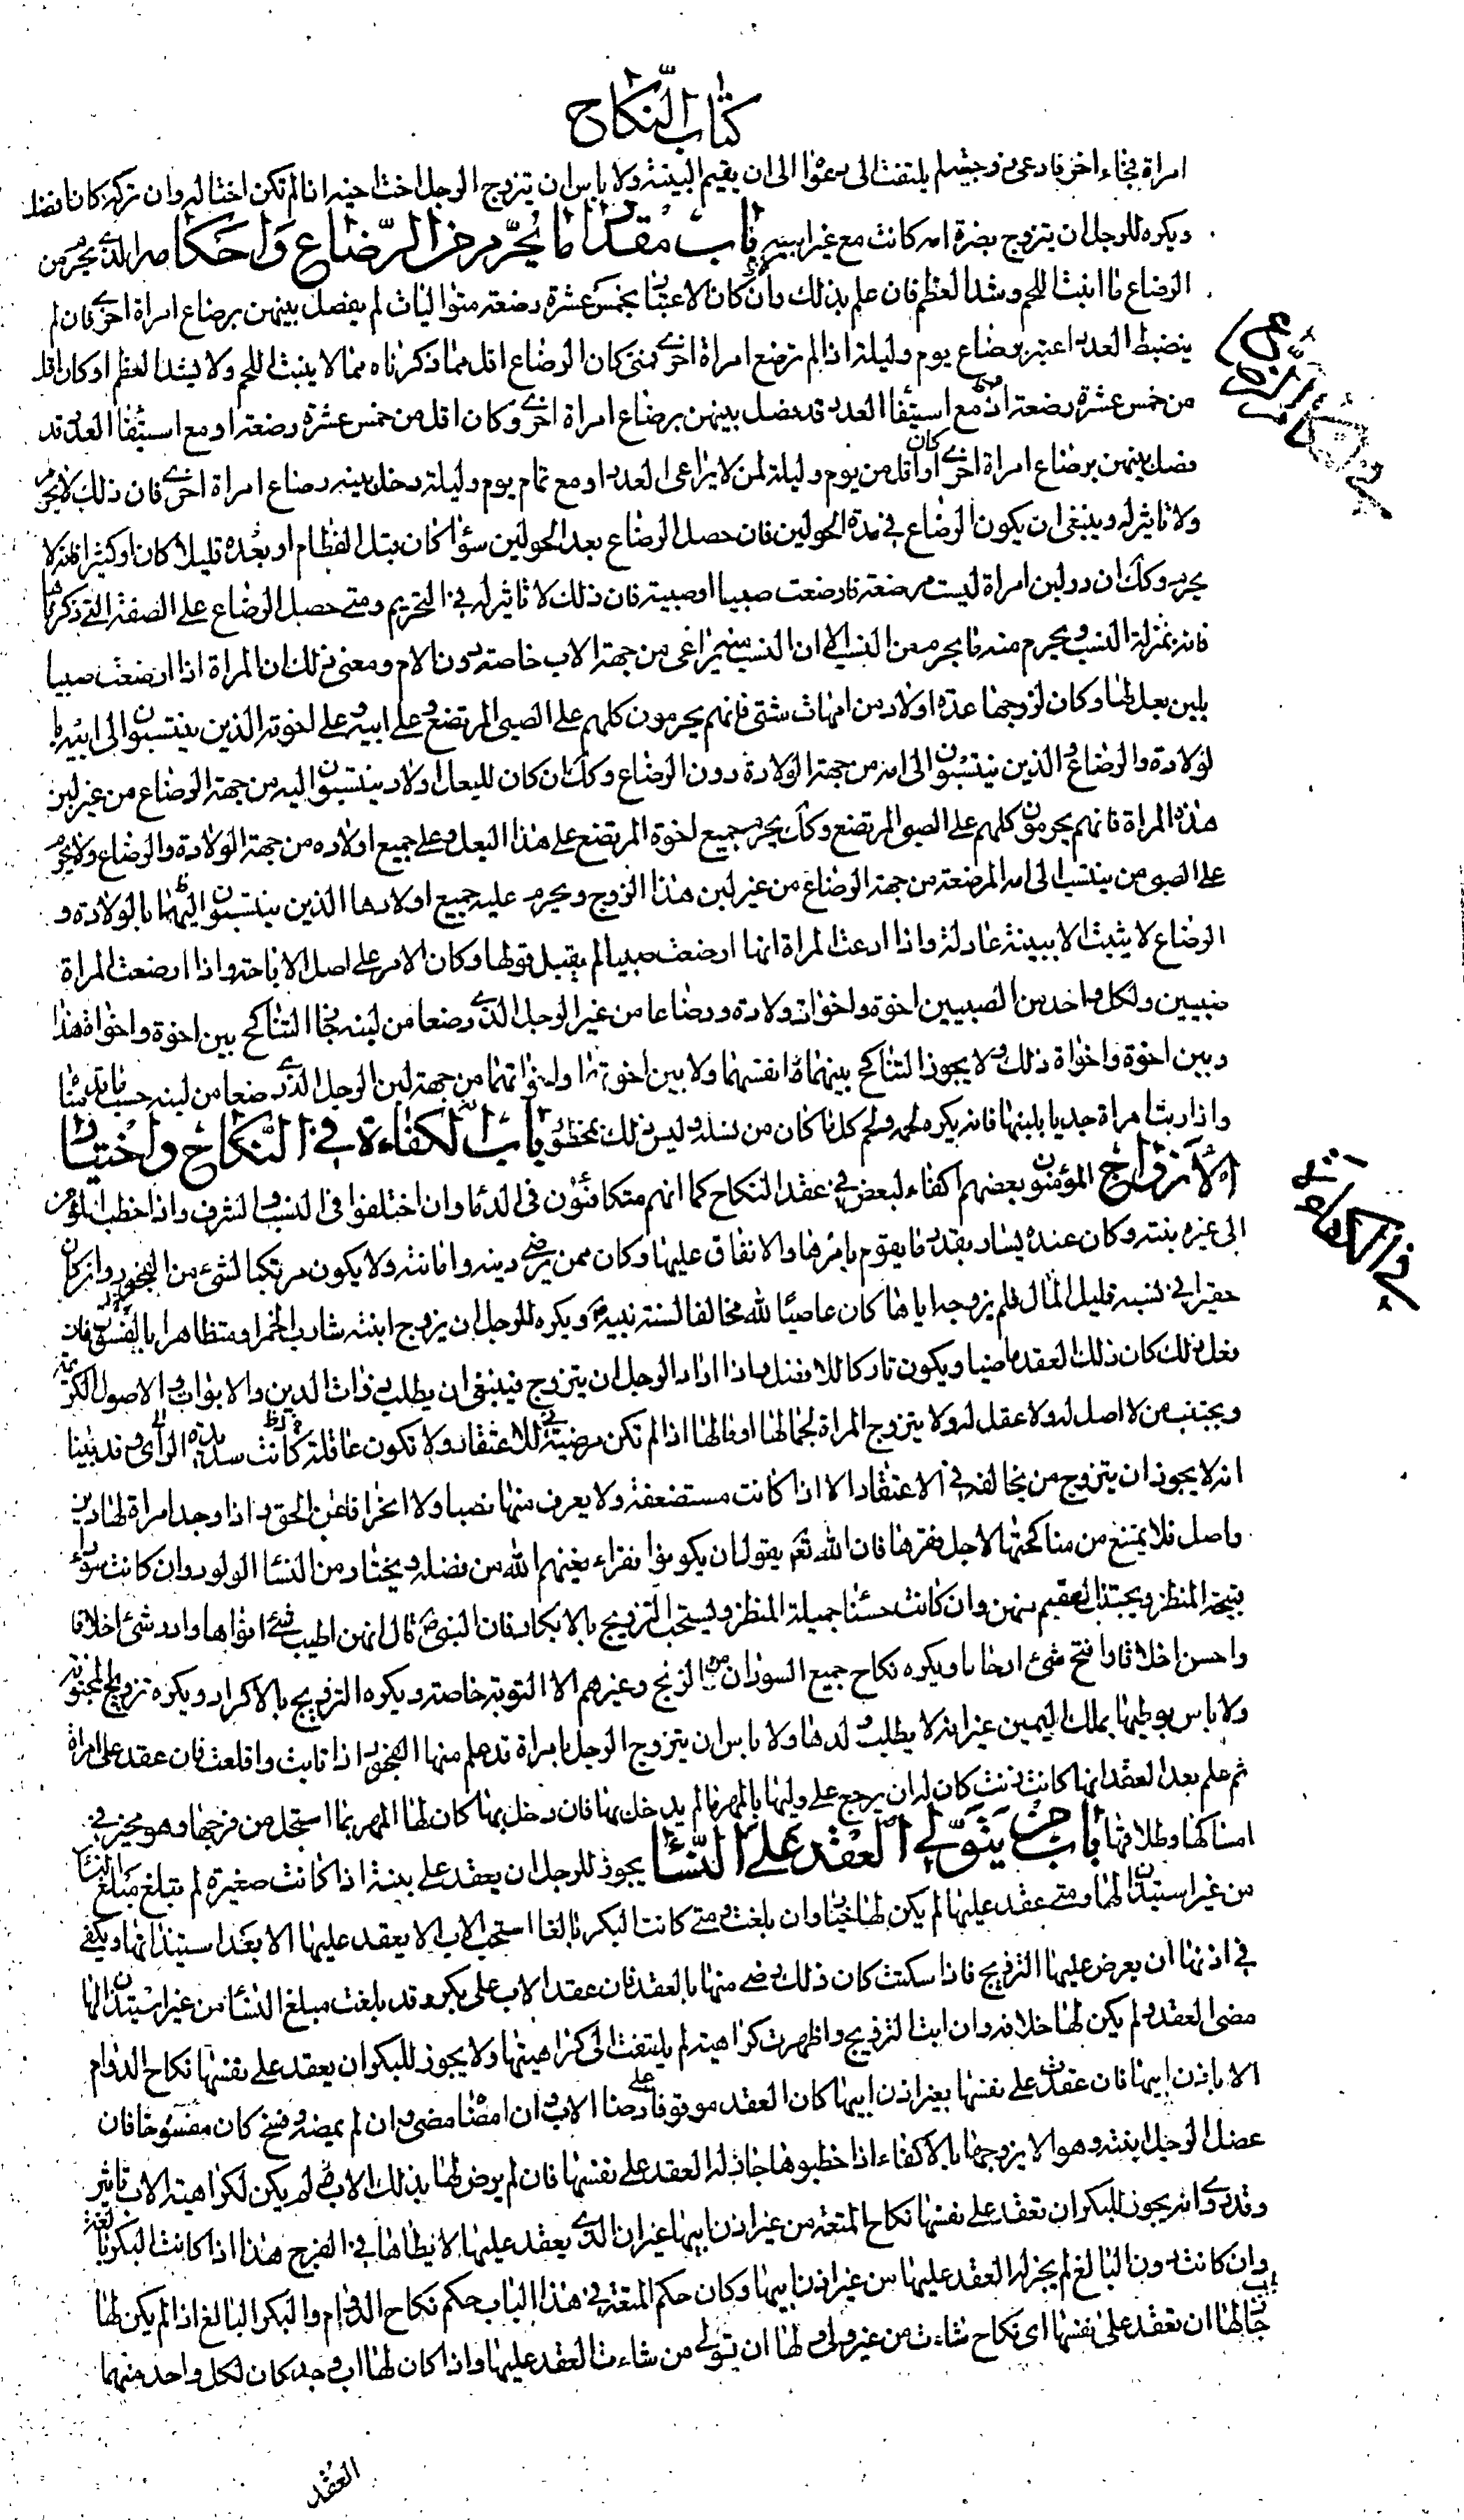 كتاب النكاح
امراة فجاء اخر فادعى زوجيتها لم يلتفت الى دعواه الى ان يقيم البينة ولا باس ان يتزوج الرجل اخت اخيه اذا لم تكن اختا له وان تركه كان افضل
ويكره للرجل ان يتزوج بضرة امه كانت مع غير ابيه باب مقدار ما يحرم من الرضاع واحكامه الذي يحرم من
الرضاع ما انبت اللحم وشد العظم فان علم بذلك والا كان الاعتبار بخمس عشرة رضعة متواليات لم يفصل بينهن برضاع امراة اخرى فان لم
ينضبط العدد اعتبر برضاع يوم وليلة اذا لم ترضع امراة اخرى فمتى كان الرضاع اقل مما ذكرناه مما لا ينبت اللحم ولا يشد العظم او كان اقل
من خمس عشرة رضعة او مع استيفاء العدد قد فصل بينهن برضاع امراة اخرى وكان اقل من خمس عشرة رضعة او مع استيفاء العدد قد
فصل بينهن برضاع امراة اخرى او كان اقل من يوم وليلة لمن لا يراعى العدد او مع تمام يوم وليلة دخل بينه رضاع امراة اخرى فان ذلك لا يحرم
ولا تاثير له وينبغي ان يكون الرضاع في مدة الحولين فان حصل الرضاع بعد الحولين سواء كان قبل الفطام او بعده قليلا كان او كثيرا فانه لا
يحرم وكك ان در لبن امراة ليست مرضعة فارضعت صبيا او صبية فان ذلك لا تاثير له في التحريم ومتى حصل الرضاع على الصفة التي ذكرناها
فانه بمنزلة النسب ويحرم منه ما يحرم من النسب الا ان النسب منه يراعى من جهة الاب خاصة دون الام ومعنى ذلك ان المراة اذا ارضعت صبيا
بلبن بعل لها وكان لزوجها عدة اولاد من امهات شتى فانهم يحرمون كلهم على الصبي المرتضع وعلى ابيه وعلى اخوته الذين ينتسبون الى ابيه با
لولادة والرضاع والذين ينتسبون الى امه من جهة الولادة دون الرضاع وكك ان كان للبعل اولاد ينتسبون اليه من جهة الرضاع من غير لبن
هذه المراة فانهم يحرمون كلهم على الصبي المرتضع وكك يحرم جميع اخوة المرتضع على هذا البعل وعلى جميع اولاده من جهة الولادة والرضاع ولا يحرم
على الصبي من ينتسب الى امه المرضعة من جهة الرضاع من غير لبن هذا الزوج ويحرم عليه جميع اولادها الذين ينتسبون اليها بالولادة و
الرضاع لا يثبت الا ببينة عادلة واذا ادعت المراة انها ارضعت صبيا لم يقبل قولها وكان الامر على اصل الاباحة واذا ارضعت المراة
صبيين ولكل واحد من الصبيين اخوة واخوات ولادة ورضاعا من غير الرجل الذي رضعا من لبنه جاز التناكح بين اخوة واخواة هذا
وبين اخوة واخواة ذلك ولا يجوز التناكح بينهما انفسهما ولا بين اخوتهما واخواتهما من جهة لبن الرجل الذي رضعا من لبنه حسب ما قدمناه
واذا ربت امراة جديا بلبنها فانه يكره لحمه ولحم كل ما كان من نسله وليس ذلك بمحظور باب الكفاءة في النكاح واختيار
الازواج المؤمنون بعضهم اكفاء لبعض في عقد النكاح كما انهم متكافئون في الدماء وان اختلفوا في النسب والشرف واذا خطب المؤمن
الى غيره بنته وكان عنده يسار بقدر ما يقوم بامرها والانفاق عليها وكان ممن يرضى دينه وامانته ولا يكون مرتكبا لشئ من الفجور وان كان
حقيرا في نسبه قليل المال فلم يزوجه اياها كان عاصيا لله مخالفا لسنة نبيه ص ويكره للرجل ان يزوج ابنته شارب الخمر او متظاهرا بالفسق فان
فعل ذلك كان ذلك العقد ماضيا ويكون تاركا للافضل واذا اراد الرجل ان يتزوج فينبغي ان يطلب ذات الدين والابوات والاصول الكريمة
ويجتنب من لا اصل له ولا عقل له ولا يتزوج المراة لجمالها او مالها اذا لم تكن مرضية في الاعتقاد ولا تكون عاقلة كانت سديدة الراى وقد بينا
انه لا يجوز ان يتزوج من يخالفه في الاعتقاد الا اذا كانت مستضعفة ولا يعرف منها نصبا ولا انحرافا عن الحق واذا وجد امراة لها دين
واصل فلا يمتنع من مناكحتها لاجل فقرها فان الله تعم يقول ان يكونوا فقراء يغنهم الله من فضله ويختار من النساء الولود وان كانت سوءاء
قبيحة المنظر ويجتنب العقيم منهن وان كانت حسناء جميلة المنظر ويستحب التزويج بالابكار فان النبي ص قال انهن اطيب شئ افواها وادر شئ اخلافا
واحسن اخلاقا وافتح شئ ارحاما ويكره نكاح جميع السودان من الزنج وغيرهم الا النوبة خاصة ويكره التزويج بالاكراد ويكره تزويج المجنونة
ولا باس بوطيها بملك اليمين غير انه لا يطلب ولدها ولا باس ان يتزوج الرجل بامراة قد علم منها الفجور اذا تابت واقلعت فان عقد على امراة
ثم علم بعد العقد انها كانت زنت كان له ان يرجع على وليها بالمهر ما لم يدخل بها فان دخل بها كان لها المهر بما استحل من فرجها وهو مخير في
امساكها وطلاقها باب من يتولى العقد على النساء يجوز للرجل ان يعقد على بنته اذا كانت صغيرة لم تبلغ مبلغ النساء
من غير استيذان لها ومتى عقد عليها لم يكن لها خيار وان بلغت ومتى كانت البكر بالغا استحب للاب الا يعقد عليها الا بعد استيذانها ويكفي
في اذنها ان يعرض عليها التزويج فاذا سكتت كان ذلك رضى منها بالعقد فان عقد الاب على بكر وقد بلغت مبلغ النساء من غير استيذان لها
مضى العقد ولم يكن لها خلافه وان ابت التزويج واظهرت كراهيته لم يلتفت الى كراهيتها ولا يجوز للبكر ان يعقد على نفسها نكاح الدوام
الا باذن ابيها فان عقدت على نفسها بغير اذن ابيها كان العقد موقوفا على رضا الاب وان امضاه مضى وان لم يمضه وفسخ كان مفسوخا فان
عضل الرجل ابنته وهو الا يزوجها بالاكفاء اذا خطبوها جاز لها العقد على نفسها فان لم يرض لها بذلك الاب لم يكن لكراهية الاب تاثير
وقد روى انه يجوز للبكر ان تعقد على نفسها نكاح المتعة من غير اذن ابيها غير ان الذي يعقد عليها لا يطاها في الفرج هذا اذا كانت البكر بالغة
وان كانت دون البالغ لم يجز له العقد عليها من غير اذن ابيها وكان حكم المتعة في هذا الباب حكم نكاح الدوام والبكر البالغ اذا لم يكن لها اب
جاز لها ان تعقد على نفسها اى نكاح شاءت من غير ولى ولها ان تولى من شاءت العقد عليها واذا كان لها اب وجد كان لكل واحد منهما
العقد
في الكفاءة